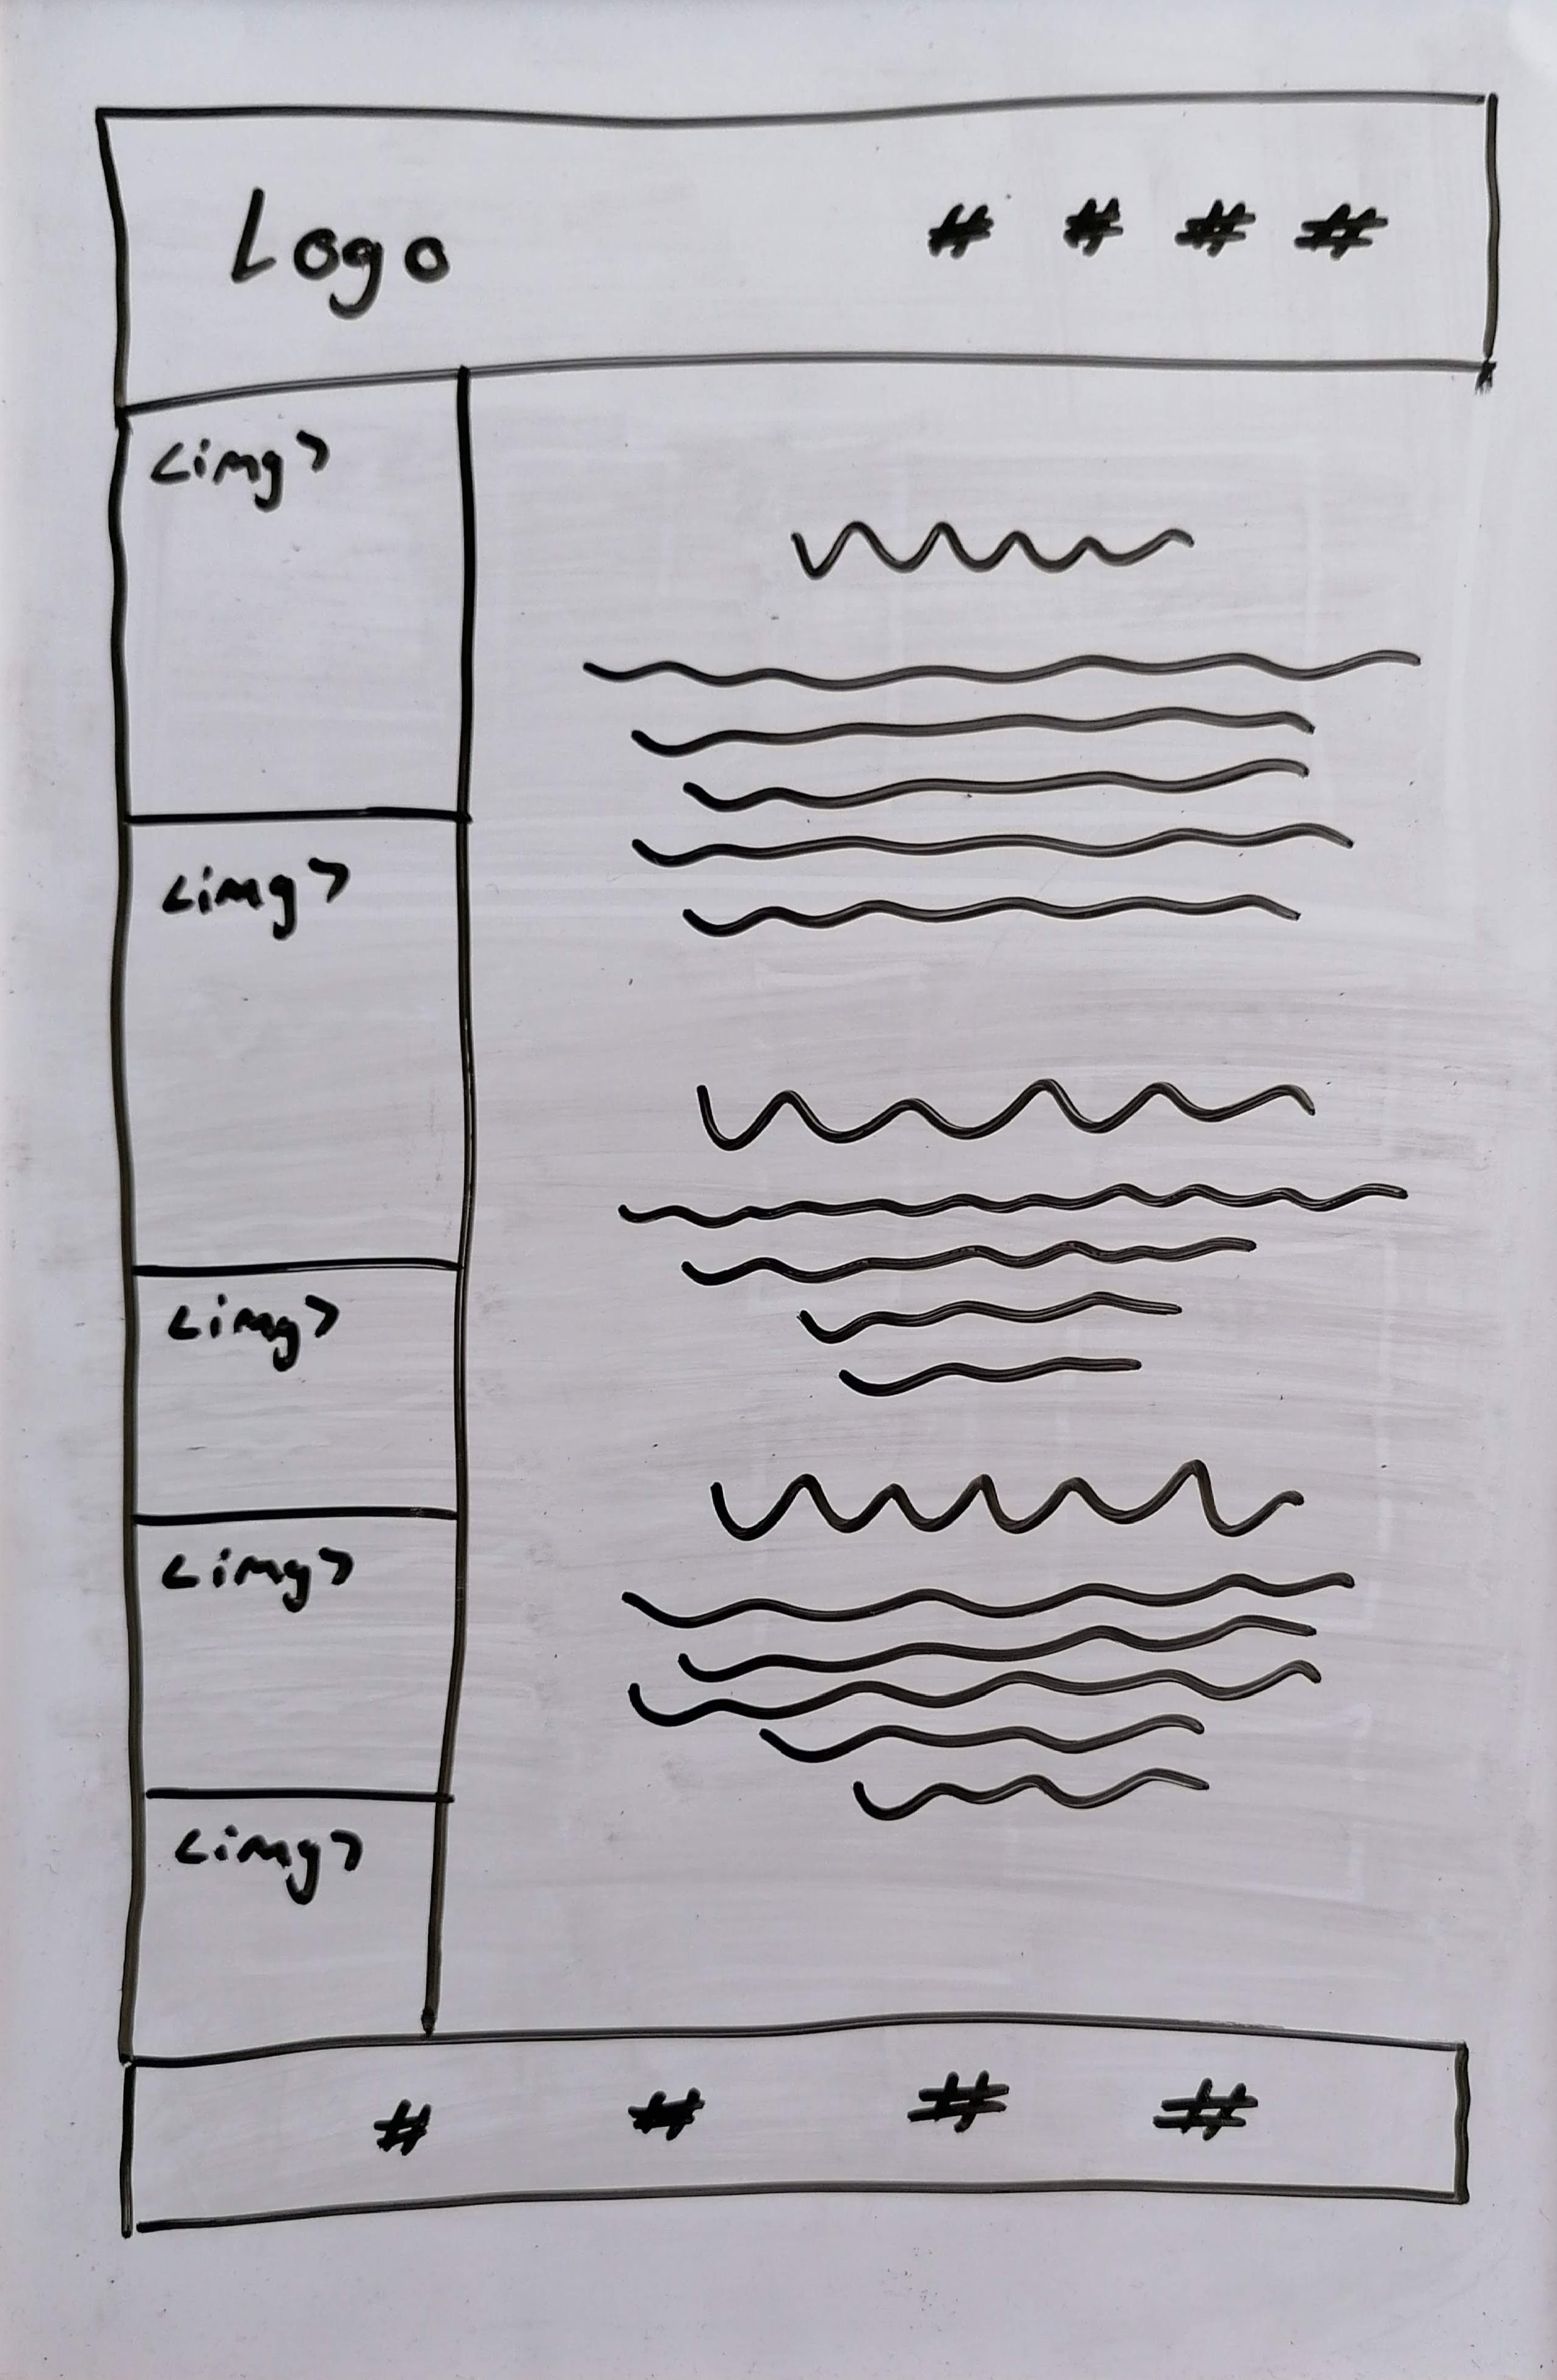 Logo # # # #
<img>
<img>
<img>
<img>
<img>
# # # #